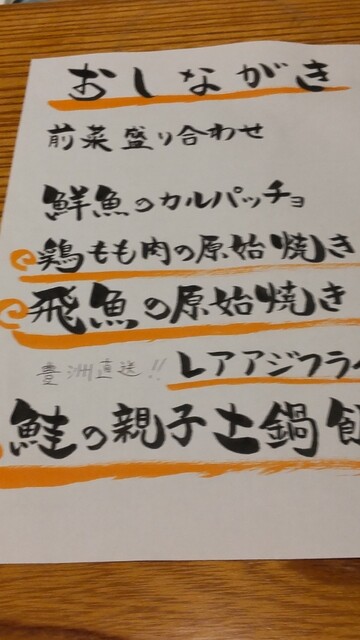 おしながき
前菜盛り合わせ
鮮魚のカルパッチョ
鶏もも肉の原始焼き
飛魚の原始焼き
豊洲直送!! レアアジフライ
鮭の親子土鍋飯